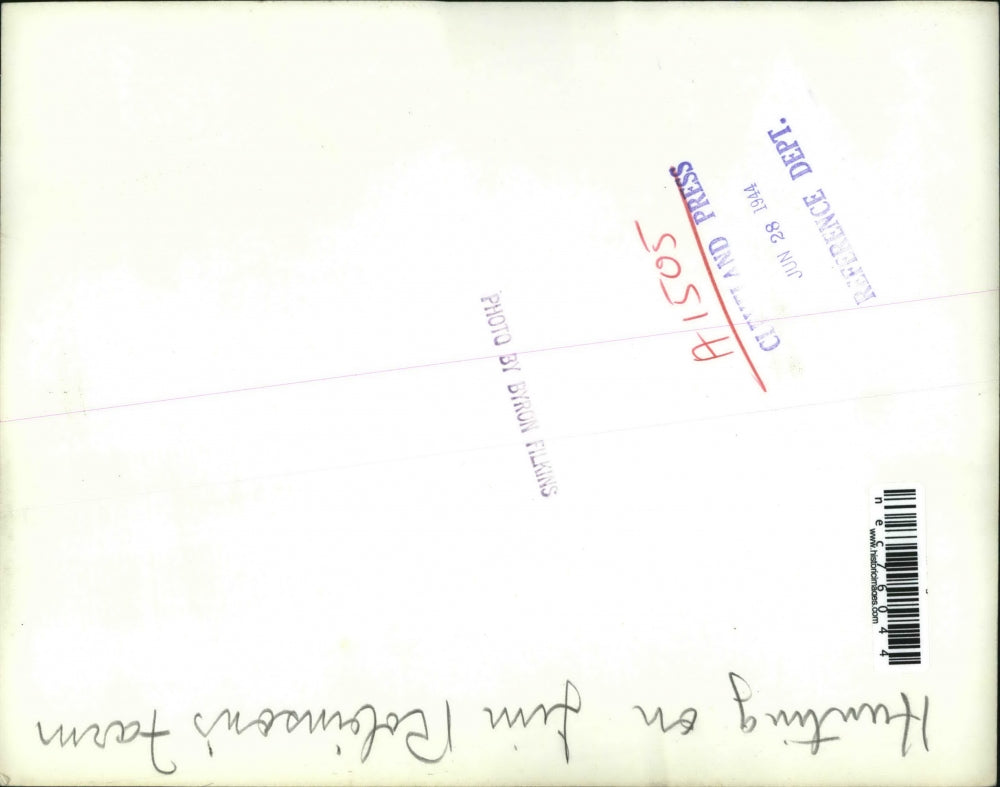 CLEVELAND PRESS
JUN 28 1944
REFERENCE DEPT.
A 1505
PHOTO BY BYRON FILKINS
nec76044
www.historicimages.com
Hunting on Jim Robinson's Farm